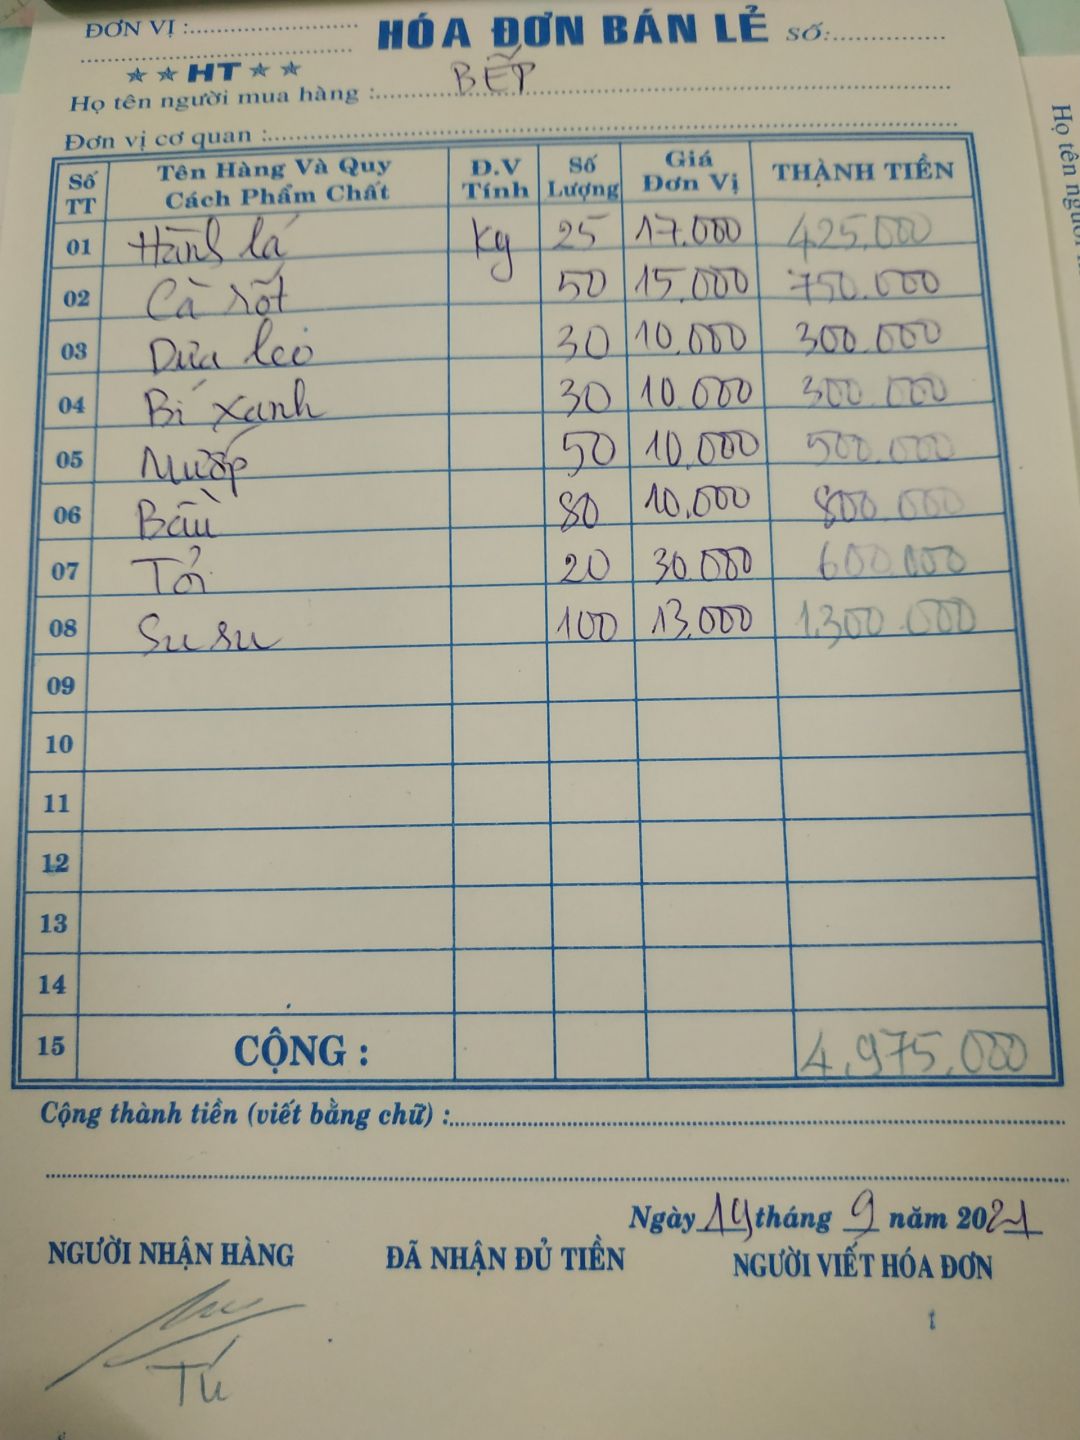 ĐƠN VỊ :
HÓA ĐƠN BÁN LẺ SỐ:
HT
Họ tên người mua hàng : BẾP
Đơn vị cơ quan :
Số TT Tên Hàng Và Quy Cách Phẩm Chất Đ.V Tính Số Lượng Giá Đơn Vị THÀNH TIỀN
01 Hành lá Kg 25 17.000 425.000
02 Cà rốt 50 15.000 750.000
03 Dưa leo 30 10.000 300.000
04 Bí xanh 30 10.000 300.000
05 Mướp 50 10.000 500.000
06 Bầu 80 10.000 800.000
07 Tỏi 20 30.000 600.000
08 Su su 100 13.000 1.300.000
09
10
11
12
13
14
15 CỘNG : 4.975.000
Cộng thành tiền (viết bằng chữ) :
Ngày 19 tháng 9 năm 2021
NGƯỜI NHẬN HÀNG ĐÃ NHẬN ĐỦ TIỀN NGƯỜI VIẾT HÓA ĐƠN
Tú
Họ tên người